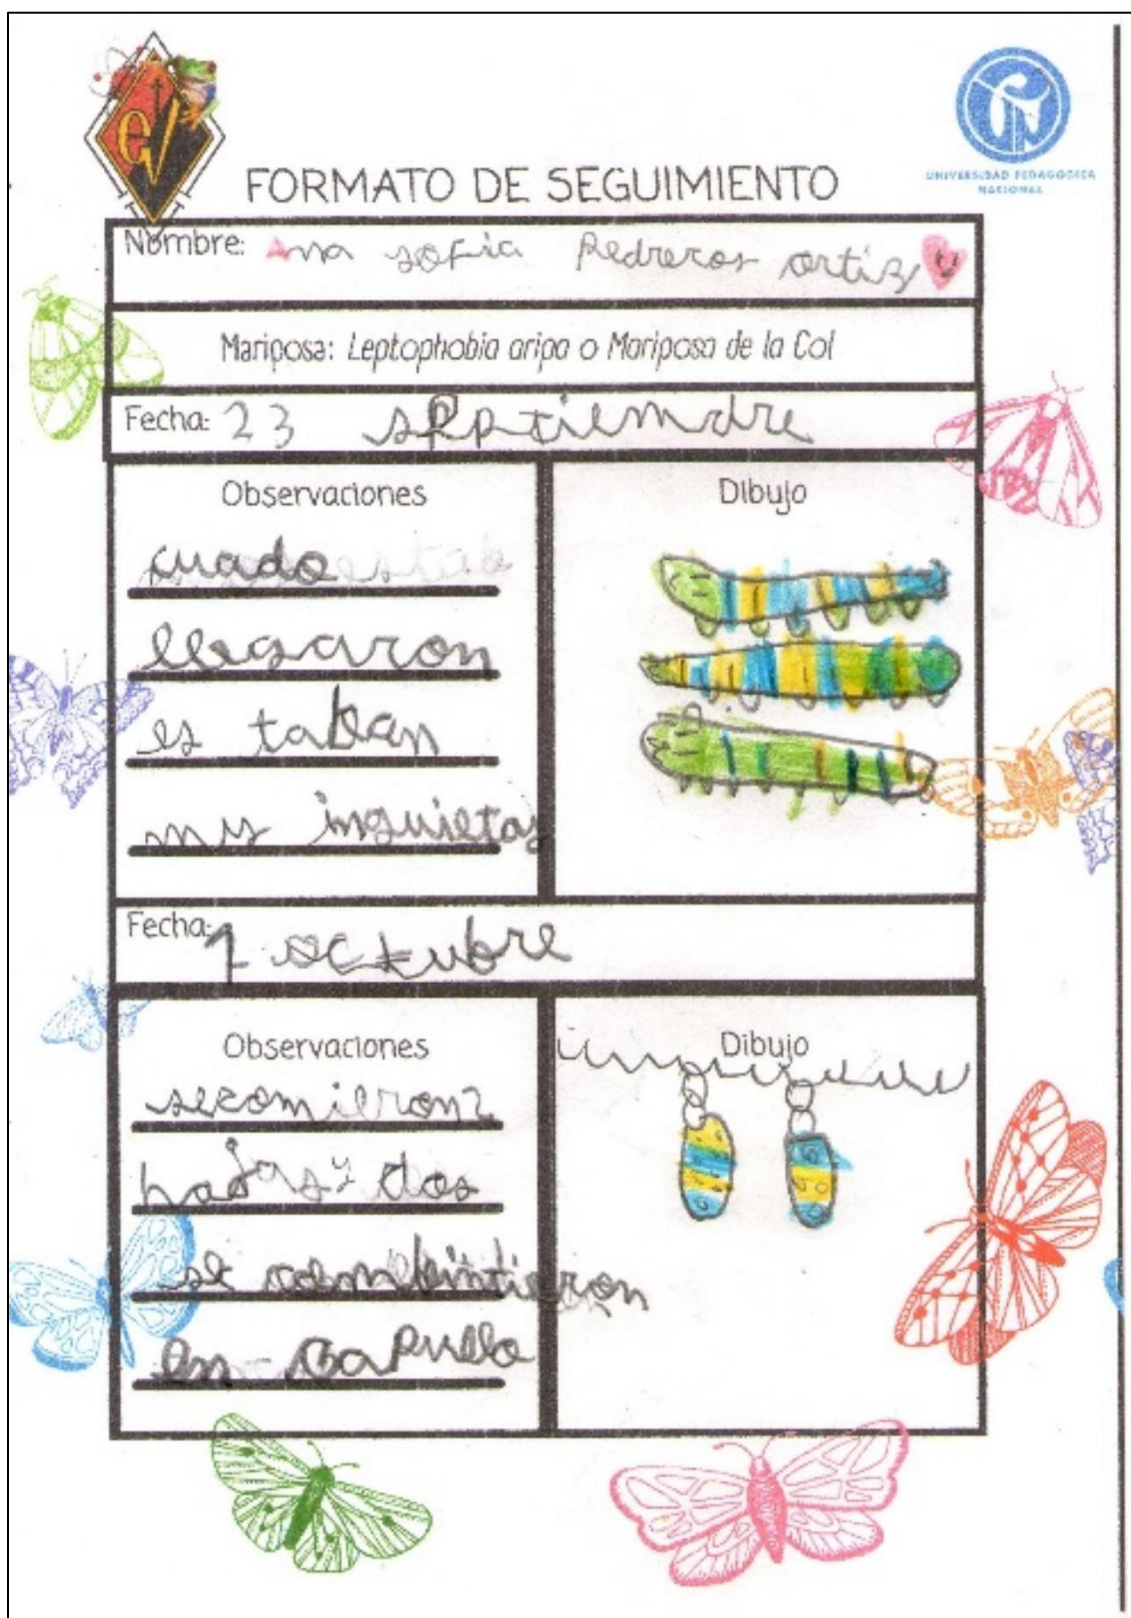 UNIVERSIDAD PEDAGOGICA
NACIONAL
FORMATO DE SEGUIMIENTO
Nombre: Ana sofia Pedreros ortiz
Mariposa: Leptophobia aripa o Mariposa de la Col
Fecha: 23 septiemdre
Observaciones
cuado
llegaron
es taban
muy inguietas
Dibujo
Fecha: 1 octubre
Observaciones
secomieron 2
hojas y dos
se combintieron
en capullo
Dibujo